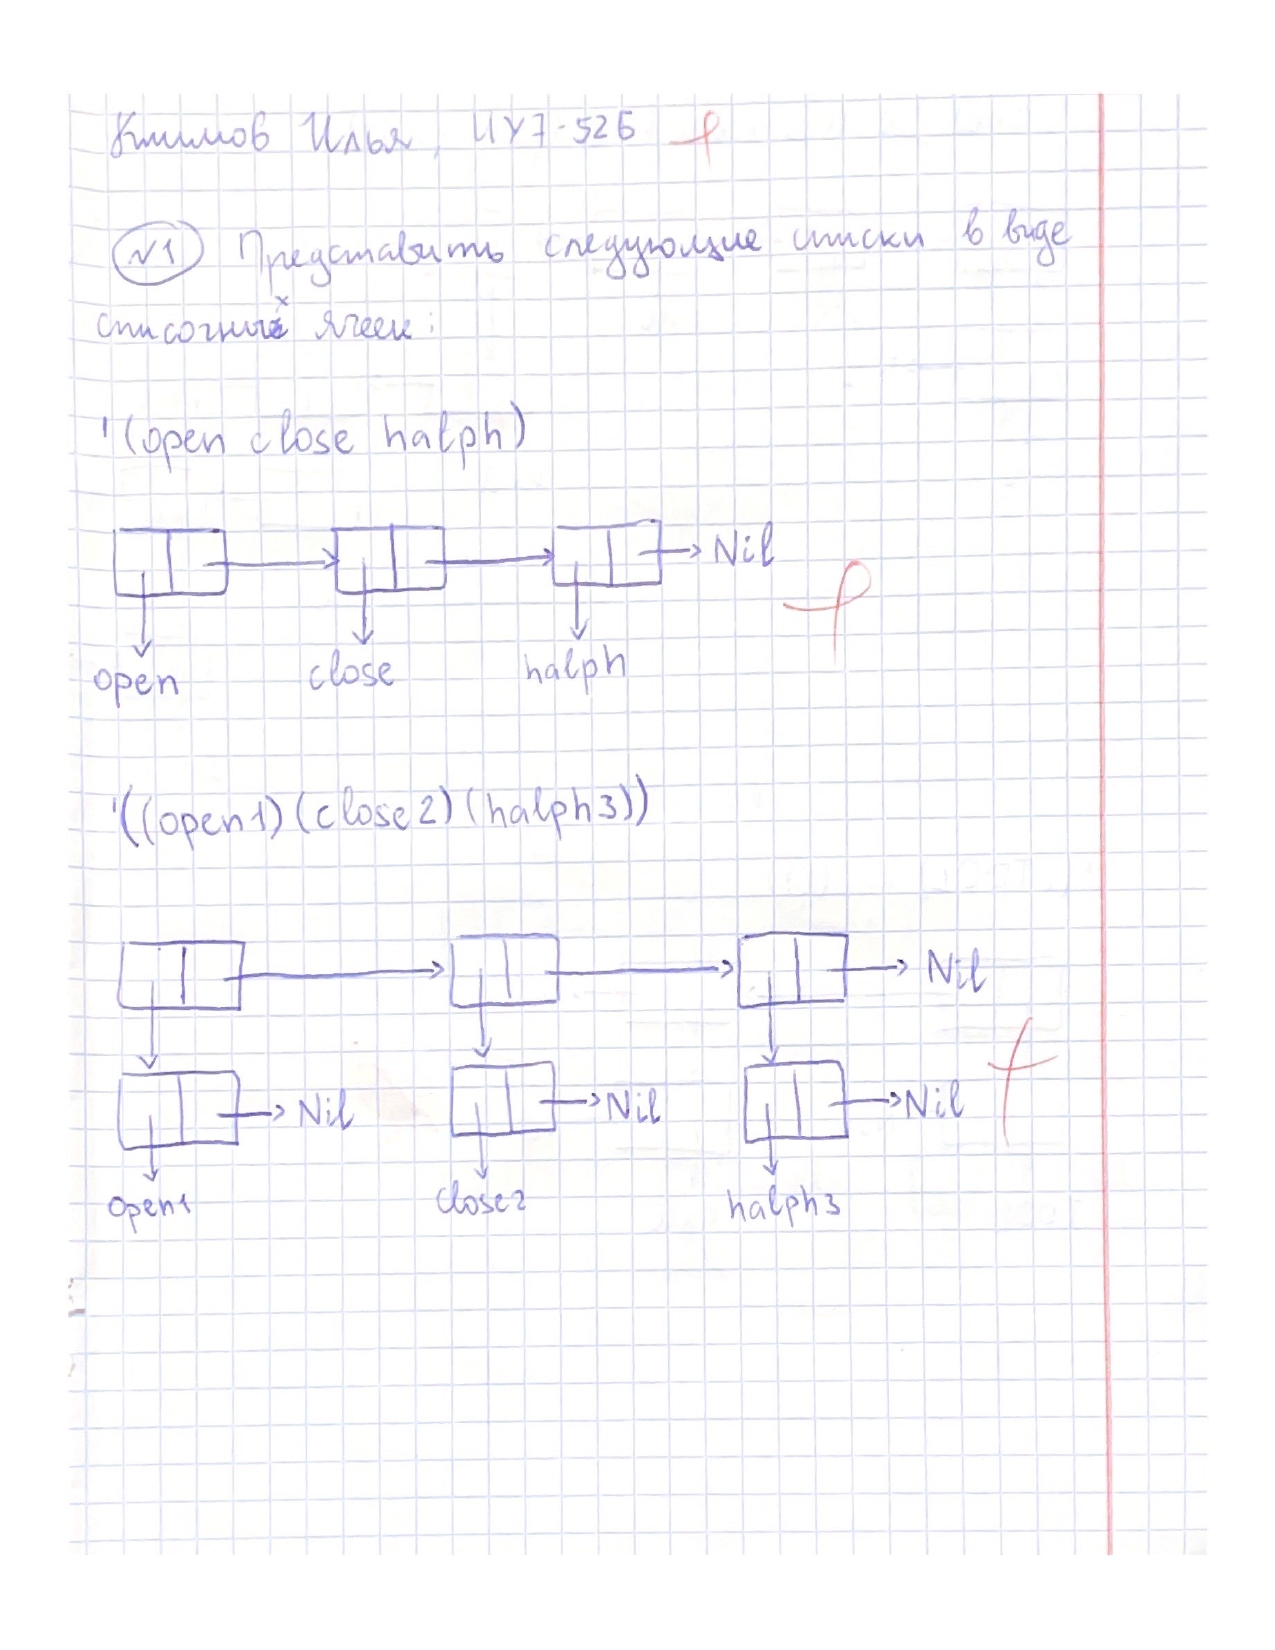 Климов Илья, ИУ7-52Б
№1 Представить следующие списки в виде
списочных ячеек:
'(open close halph)
Nil
open close halph
'((open1)(close2)(halph3))
Nil
Nil Nil Nil
open1 close2 halph3